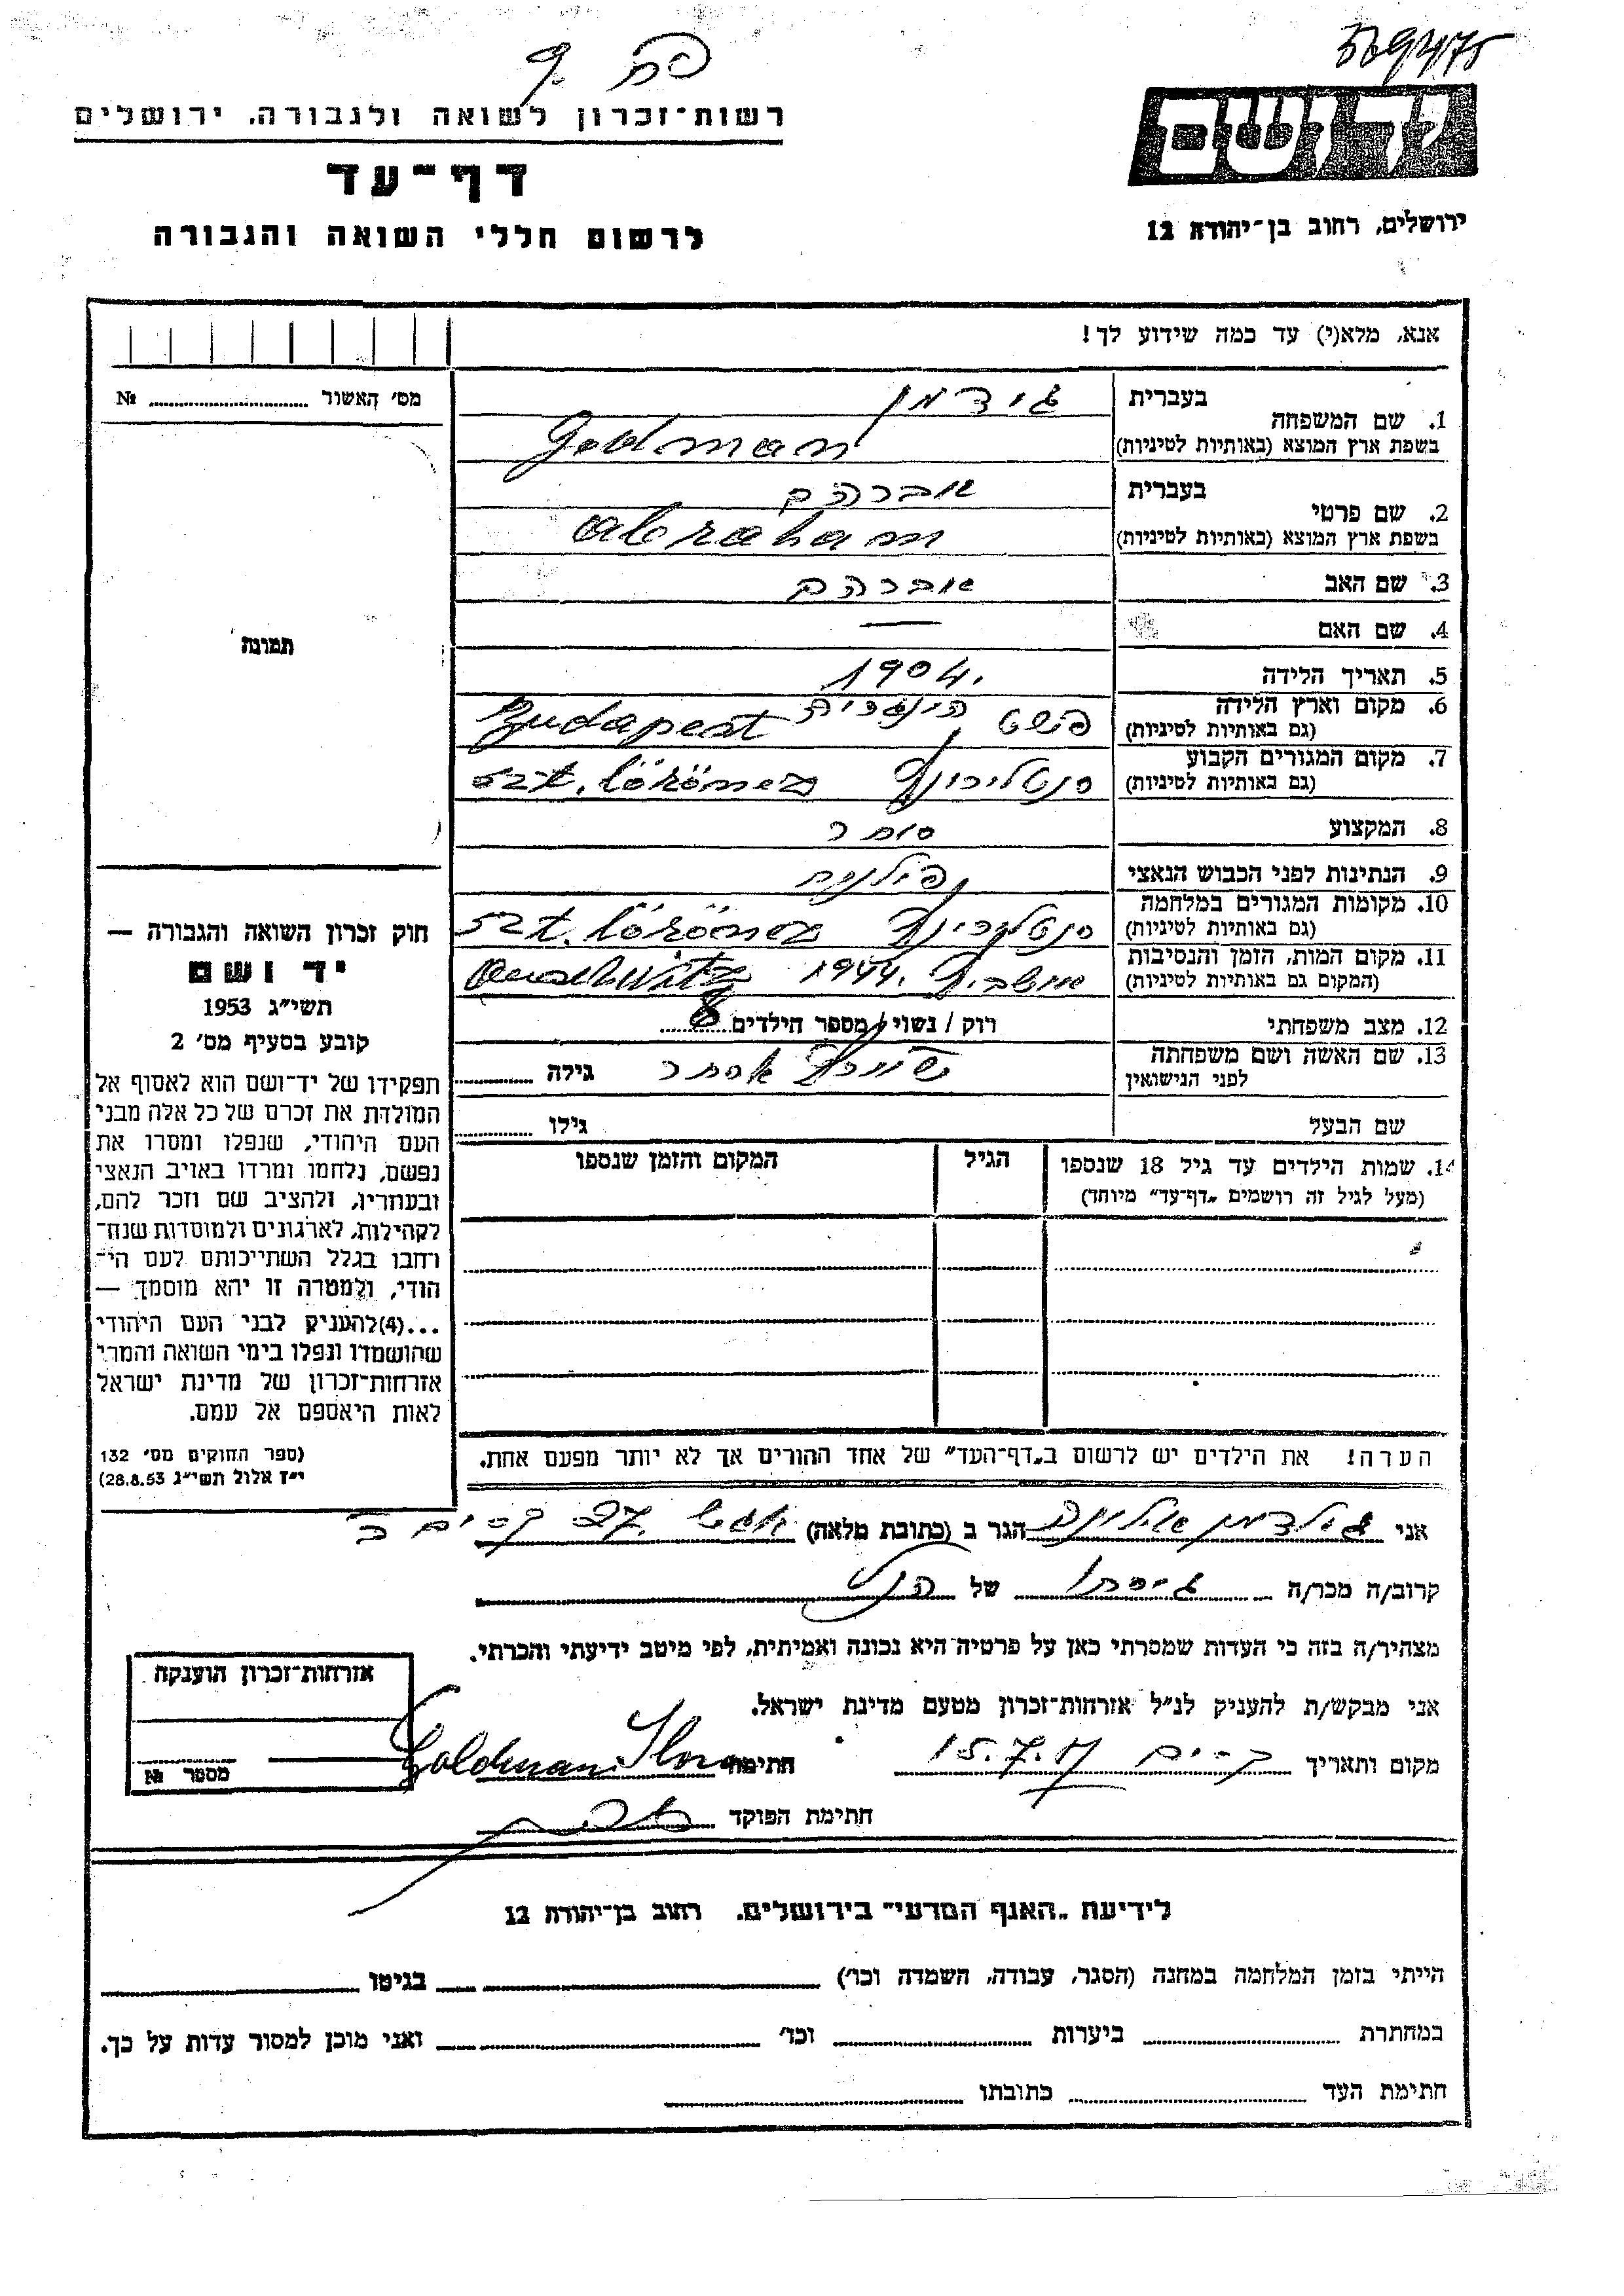 רשות־זכרון לשואה ולגבורה, ירושלים
דף־עד
לרשום חללי השואה והגבורה
יד ושם
ירושלים, רחוב בן־יהודה 12
אנא, מלא(י) עד כמה שידוע לך!
מס׳ האשור № 
1. שם המשפחה
בעברית
בשפת ארץ המוצא (באותיות לטיניות)
Goldman
2. שם פרטי
בעברית אברהם
בשפת ארץ המוצא (באותיות לטיניות) abraham
3. שם האב אברהם
4. שם האם —
5. תאריך הלידה 1904.
6. מקום וארץ הלידה
(גם באותיות לטיניות) פשט הונגריה Budapest
7. מקום המגורים הקבוע
(גם באותיות לטיניות) szt. lörömcz
8. המקצוע סוחר
9. הנתינות לפני הכבוש הנאצי
10. מקומות המגורים במלחמה
(גם באותיות לטיניות) szt. lörömcz
11. מקום המות, הזמן והנסיבות
(המקום גם באותיות לטיניות) אושביץ 1944. Auschwitz
12. מצב משפחתי רוק / נשוי / מספר הילדים 8
13. שם האשה ושם משפחתה
לפני הנישואין אסתר גילה
שם הבעל גילו
14. שמות הילדים עד גיל 18 שנספו
(מעל לגיל זה רושמים „דף־עד״ מיוחד)
הגיל
המקום והזמן שנספו
הערה! את הילדים יש לרשום ב„דף־העד״ של אחד ההורים אך לא יותר מפעם אחת.
תמונה
חוק זכרון השואה והגבורה —
יד ושם
תשי״ג 1953
קובע בסעיף מס׳ 2
תפקידו של יד־ושם הוא לאסוף אל
המולדת את זכרם של כל אלה מבני
העם היהודי, שנפלו ומסרו את
נפשם, נלחמו ומרדו באויב הנאצי
ובעוזריו, ולהציב שם וזכר להם,
לקהילות, לארגונים ולמוסדות שנח־
רבו בגלל השתייכותם לעם הי־
הודי, ולמטרה זו יהא מוסמך —
...(4)להעניק לבני העם היהודי
שהושמדו ונפלו בימי השואה והמרי
אזרחות־זכרון של מדינת ישראל
לאות היאספם אל עמם.
(ספר החוקים מס׳ 132
י״ז אלול תשי״ג 28.8.53)
אני גולדמן אילונה הגר ב (כתובת מלאה) 27
קרוב/ה מכר/ה גיסתו של הנ״ל
מצהיר/ה בזה כי העדות שמסרתי כאן על פרטיה היא נכונה ואמיתית, לפי מיטב ידיעתי והכרתי.
אני מבקש/ת להעניק לנ״ל אזרחות־זכרון מטעם מדינת ישראל.
מקום ותאריך 15.7.57 חתימה Goldman Ilona
חתימת הפוקד
אזרחות־זכרון הוענקה
מספר №
לידיעת „האגף המדעי״ בירושלים, רחוב בן־יהודה 12
הייתי בזמן המלחמה במחנה (הסגר, עבודה, השמדה וכו׳) בגיטו
במחתרת ביערות וכו׳ ואני מוכן למסור עדות על כך.
חתימת העד כתובתו